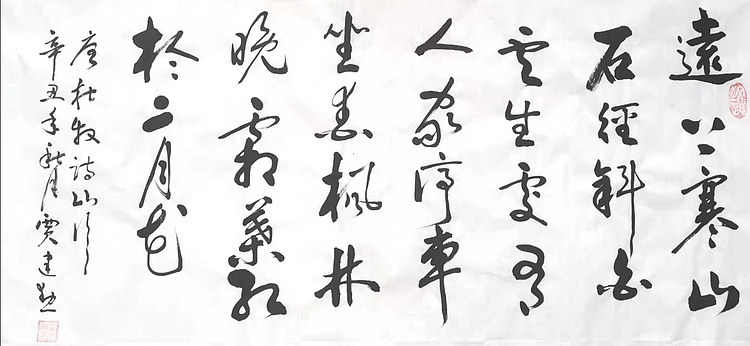 遠上寒山
石徑斜白
雲生處有
人家停車
坐愛楓林
晚霜葉紅
於二月花
唐杜牧詩山行
辛丑年秋月賈建勳